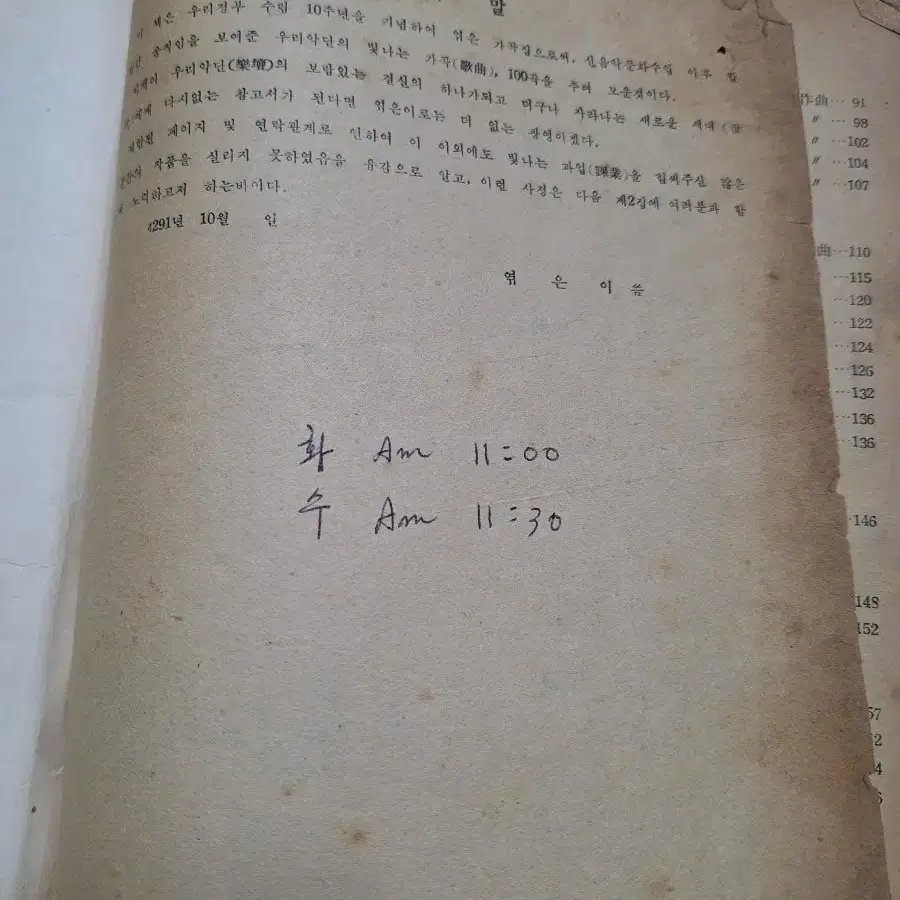 말
이 책은 우리정부 수립 10주년을 기념하여 엮은 가곡집으로써, 신음악문화수입 이후
움직임을 보여준 우리악단의 빛나는 가곡(歌曲), 100곡을 추려 모은것이다.
우리악단(樂壇)의 보람있는 결실의 하나가되고 더구나 자라나는 새로운 세대
다시없는 참고서가 된다면 엮은이로는 더 없는 광영이겠다.
제한된 페이지 및 연락관계로 인하여 이 이외에도 빛나는 과업(課業)을 힘써주신 많은
작품을 실리지 못하였음을 유감으로 알고, 이런 사정은 다음 제2집에 여러분과 함
노력하고저 하는바이다.
4291년 10월 일
엮은이 씀
화 Am 11:00
수 Am 11:30
作曲… 91
〃 … 98
〃 …102
〃 …104
〃 …107
曲…110
…115
…120
…122
…124
…126
…132
…136
…136
146
148
152
57
2
4